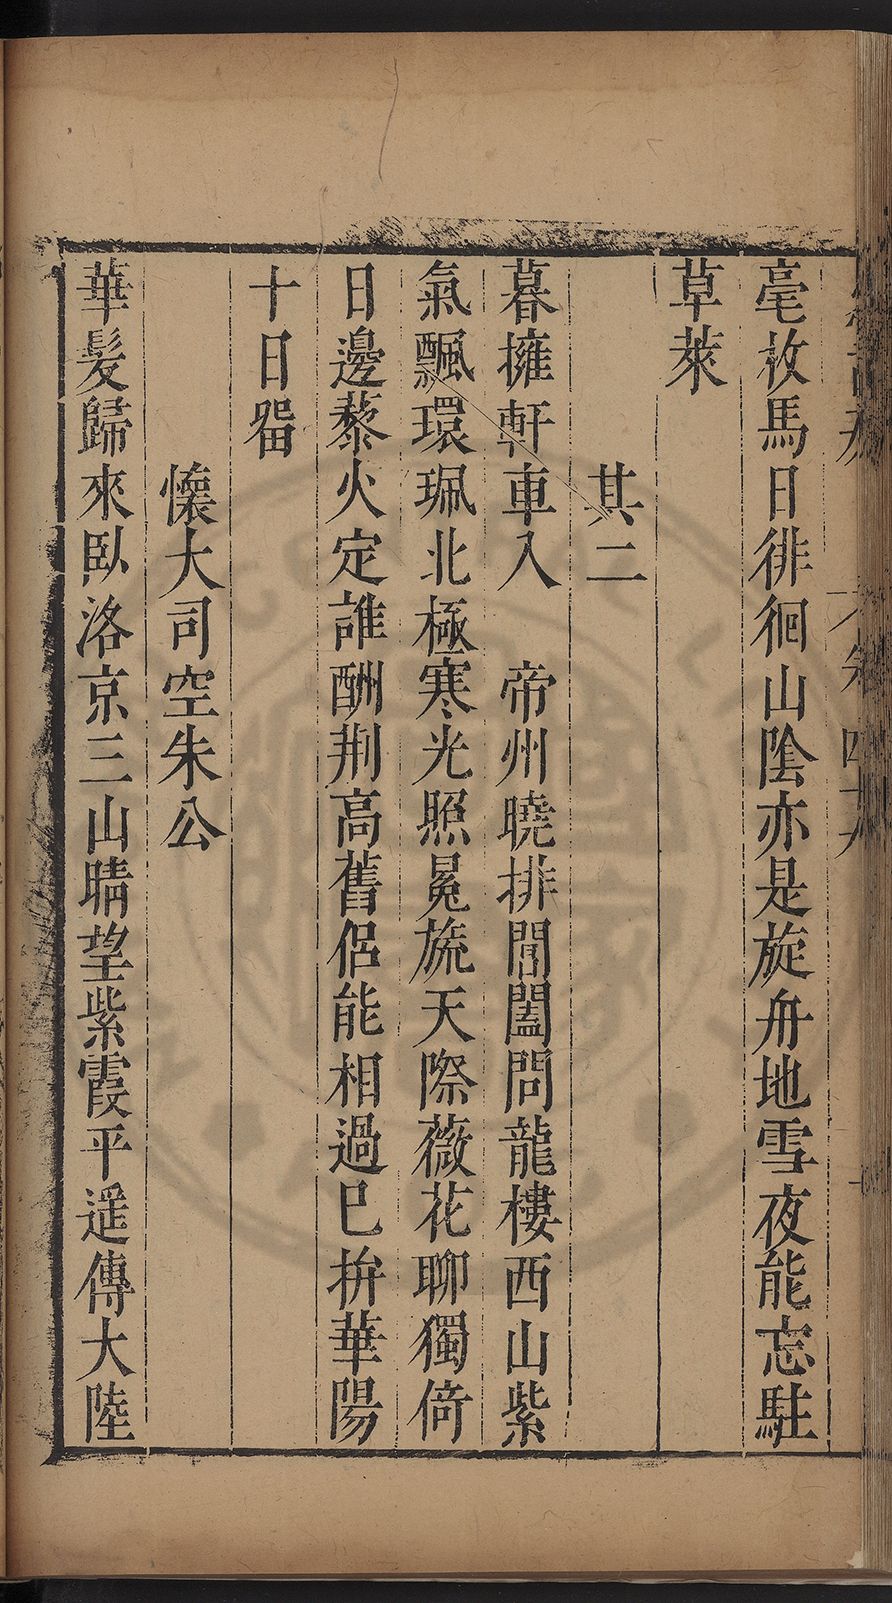 亳枚馬日徘徊山陰亦是旋舟地雪夜能忘駐
草萊
其二
暮擁軒車入　帝州曉排閶闔問龍樓西山紫
氣飄環珮北極寒光照冕旒天際薇花聊獨倚
日邊藜火定誰酬荆高舊侶能相過巳拚華陽
十日畱
懷大司空朱公
華髮歸來臥洛京三山晴望紫霞平遥傳大陸